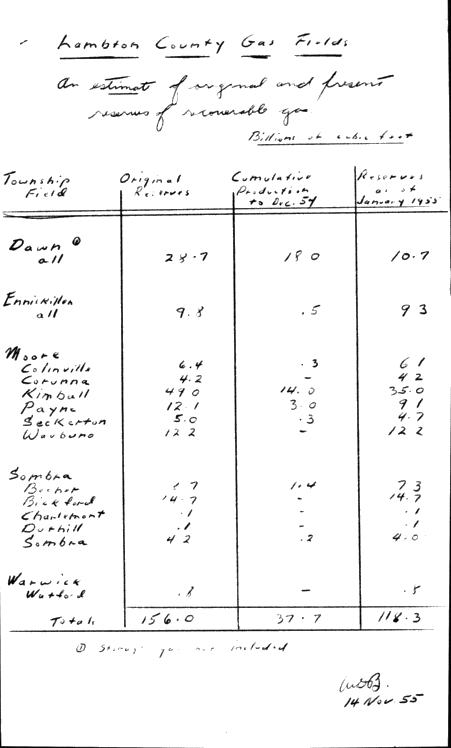 Lambton County Gas Fields
An estimate of original and present
reserves of recoverable gas
Billions of cubic feet
Township Field | Original Reserves | Cumulative Production to Dec. 54 | Reserves as of January 1955
Dawn ①
all 28.7 18 0 10.7
Enniskillen
all 9.8 .5 9 3
Moore
Colinville 6.4 .3 6 1
Corunna 4.2 - 4 2
Kimball 49 0 14.0 35.0
Payne 12.1 3.0 9 1
Seckerton 5.0 .3 4.7
Waubuno 12 2 - 12 2
Sombra
Becher 7 1.4 7 3
Bickford 14.7 - 14.7
Charlemont .1 - .1
Duthill .1 - .1
Sombra 4 2 .2 4.0
Warwick
Watford .8 -
Totals 156.0 37.7 118.3
① Storage gas not included
WDB.
14 Nov 55